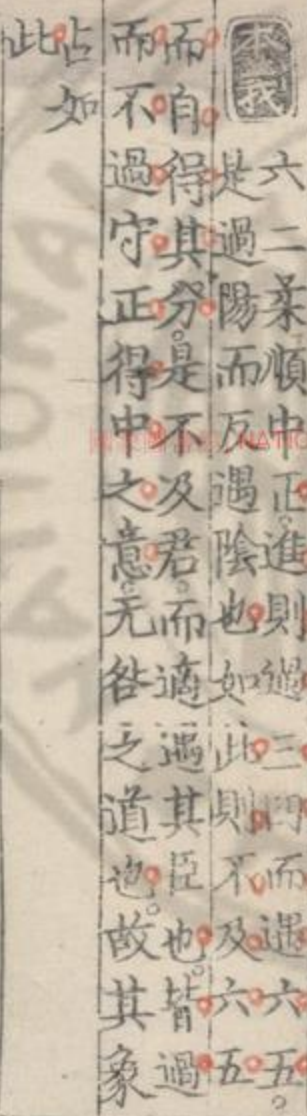 本義
六二柔順中正進則過三四而遇六五
是過陽而反遇陰也如此則不及六五
而自得其分是不及君而適遇其臣也皆過
而不過守正得中之意无咎之道也故其象
占如
此